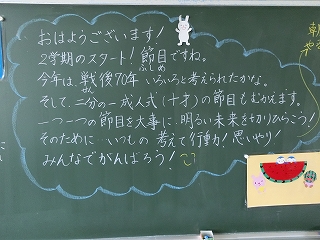 おはようございます!
2学期のスタート! 節目ですね。
ふしめ
今年は、戦後70年 いろいろと考えられたかな。
そして、二分の一成人式(十才)の節目もむかえます。
一つ一つの節目を大事に、明るい未来を切りひらこう!
そのために いつもの 考えて行動力! 思いやり!
みんなでがんばろう!
朝